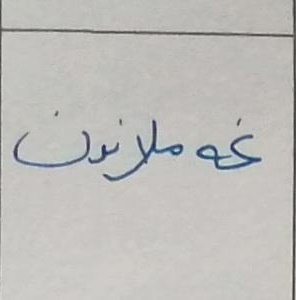 غه ملاندن